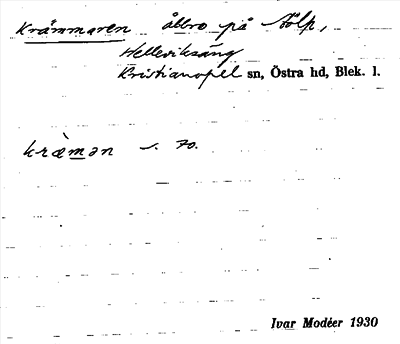 Krämmaren ålbro på Stölp,
Helleviksäng
Kristianopel sn, Östra hd, Blek. l.
kràmən s. 70.
Ivar Modéer 1930